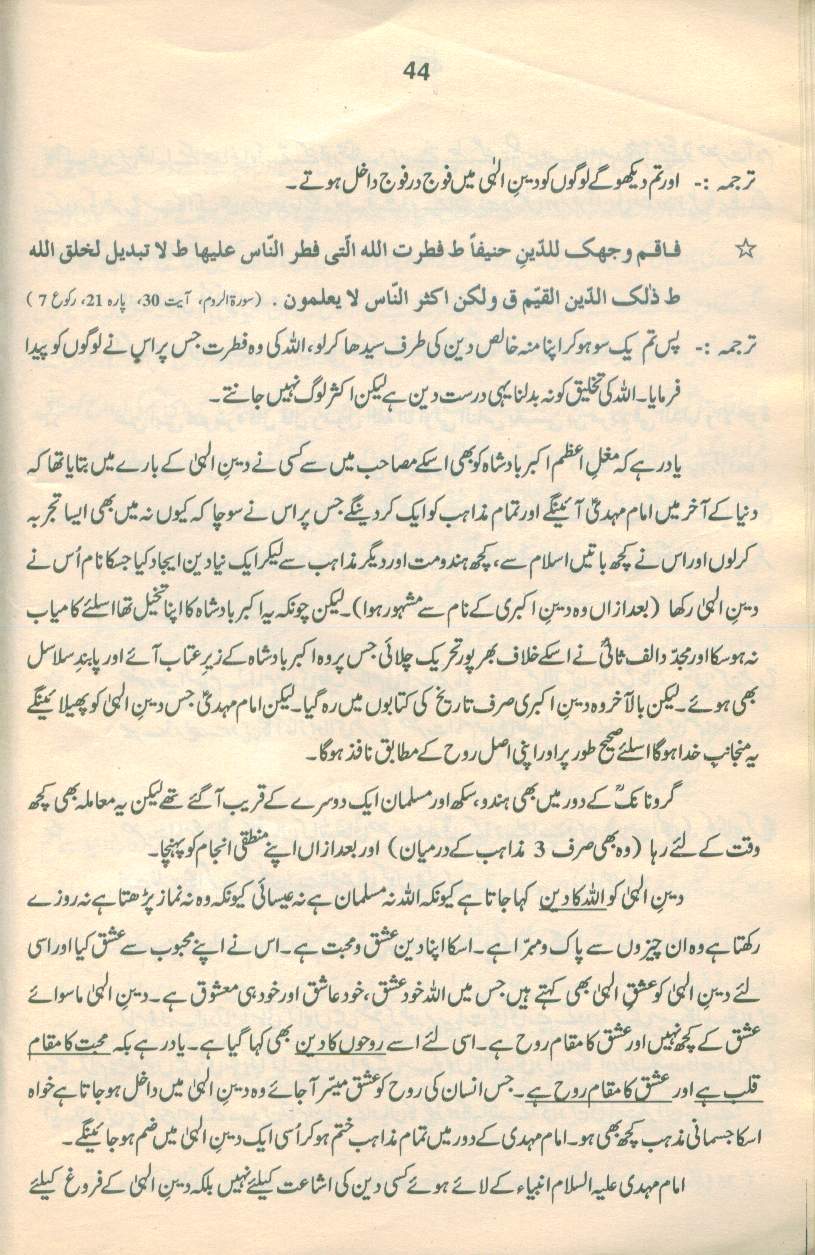 44
ترجمہ :- اور تم دیکھو گے لوگوں کو دینِ الہٰی میں فوج در فوج داخل ہوتے۔
☆ فاقم وجھک للدّینِ حنیفاً ط فطرت الله الّتی فطر النّاس علیھا ط لا تبدیل لخلق الله
ط ذٰلک الدّین القیّم ق ولکن اکثر النّاس لا یعلمون . (سورۃ الروم، آیت 30، پارہ 21، رکوع 7 )
ترجمہ :- پس تم یک سو ہو کر اپنا منہ خالص دین کی طرف سیدھا کرلو، اللہ کی وہ فطرت جس پر اس نے لوگوں کو پیدا
فرمایا۔ اللہ کی تخلیق کو نہ بدلنا یہی درست دین ہے لیکن اکثر لوگ نہیں جانتے۔
یاد رہے کہ مغلِ اعظم اکبر بادشاہ کو بھی اسکے مصاحب میں سے کسی نے دینِ الہیٰ کے بارے میں بتایا تھا کہ
دنیا کے آخر میں امام مہدیؑ آئینگے اور تمام مذاہب کو ایک کر دینگے جس پر اس نے سوچا کہ کیوں نہ میں بھی ایسا تجربہ
کرلوں اور اس نے کچھ باتیں اسلام سے، کچھ ہندومت اور دیگر مذاہب سے لیکر ایک نیا دین ایجاد کیا جسکا نام اُس نے
دینِ الہیٰ رکھا (بعد ازاں وہ دینِ اکبری کے نام سے مشہور ہوا)۔ لیکن چونکہ یہ اکبر بادشاہ کا اپنا تخیل تھا اسلئے کامیاب
نہ ہو سکا اور مجدّد الف ثانیؒ نے اسکے خلاف بھر پور تحریک چلائی جس پر وہ اکبر بادشاہ کے زیرِ عتاب آئے اور پابندِ سلاسل
بھی ہوئے۔ لیکن بالآخر وہ دینِ اکبری صرف تاریخ کی کتابوں میں رہ گیا۔ لیکن امام مہدیؑ جس دینِ الہیٰ کو پھیلائینگے
یہ منجانبِ خدا ہوگا اسلئے صحیح طور پر اور اپنی اصل روح کے مطابق نافذ ہوگا۔
گرونانکؒ کے دور میں بھی ہندو، سکھ اور مسلمان ایک دوسرے کے قریب آ گئے تھے لیکن یہ معاملہ بھی کچھ
وقت کے لئے رہا (وہ بھی صرف 3 مذاہب کے درمیان) اور بعد ازاں اپنے منطقی انجام کو پہنچا۔
دینِ الہیٰ کو اللہ کا دین کہا جاتا ہے کیونکہ اللہ نہ مسلمان ہے نہ عیسائی کیونکہ وہ نہ نماز پڑھتا ہے نہ روزے
رکھتا ہے وہ ان چیزوں سے پاک و مبرّا ہے۔ اسکا اپنا دین عشق و محبت ہے۔ اس نے اپنے محبوب سے عشق کیا اور اسی
لئے دینِ الہیٰ کو عشقِ الہیٰ بھی کہتے ہیں جس میں اللہ خود عشق، خود عاشق اور خود ہی معشوق ہے۔ دینِ الہیٰ ماسوائے
عشق کے کچھ نہیں اور عشق کا مقام روح ہے۔ اسی لئے اسے روحوں کا دین بھی کہا گیا ہے۔ یاد رہے کہ محبت کا مقام
قلب ہے اور عشق کا مقام روح ہے۔ جس انسان کی روح کو عشق میسّر آ جائے وہ دینِ الہیٰ میں داخل ہو جاتا ہے خواہ
اسکا جسمانی مذہب کچھ بھی ہو۔ امام مہدی کے دور میں تمام مذاہب ختم ہو کر اُسی ایک دینِ الہیٰ میں ضم ہو جائینگے۔
امام مہدی علیہ السلام انبیاء کے لائے ہوئے کسی دین کی اشاعت کیلئے نہیں بلکہ دینِ الہیٰ کے فروغ کیلئے